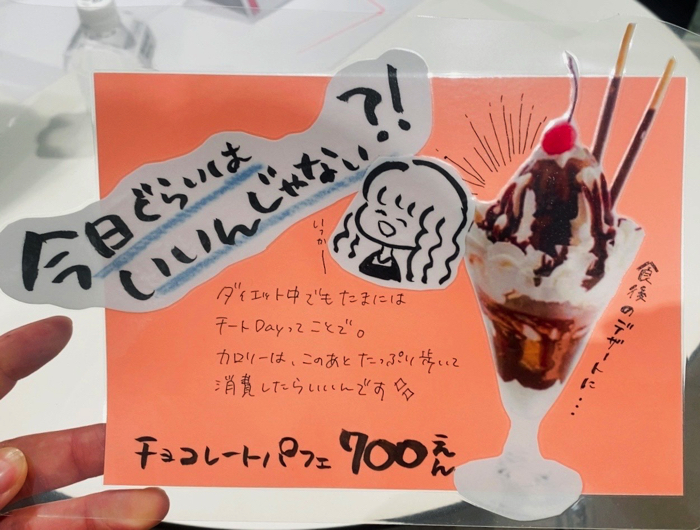 今日ぐらいは
いいんじゃない?!
いっかー
ダイエット中でもたまには
チートDayってことで。
カロリーは、このあとたっぷり歩いて
消費したらいいんです
食後のデザートに...
チョコレートパフェ 700えん